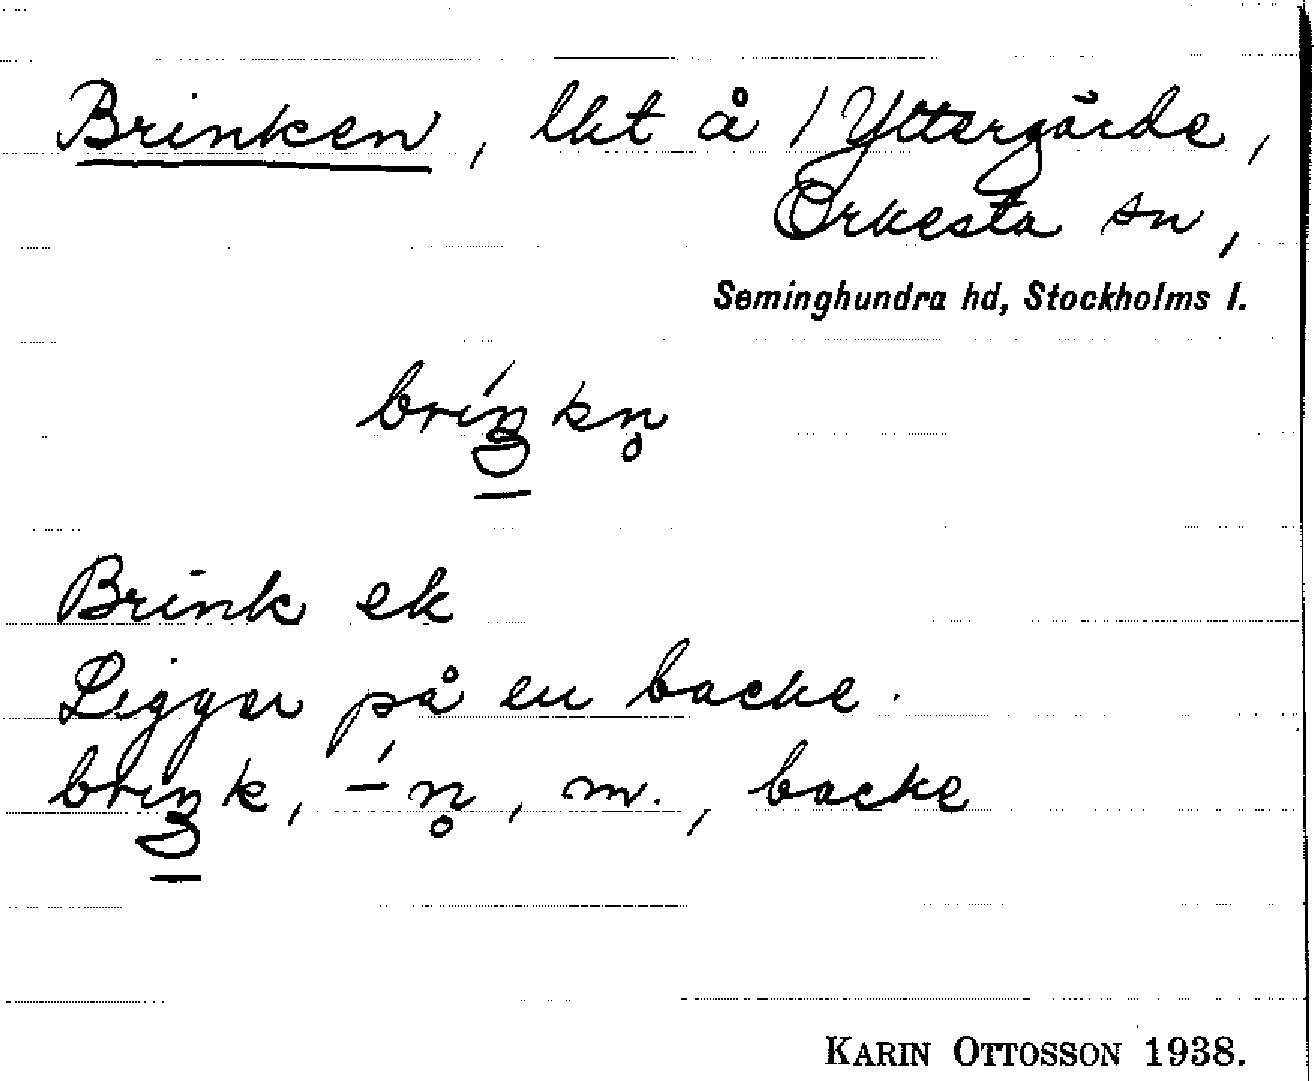 Brinken, lht å 1 Yttergärde,
Orkesta sn,
Seminghundra hd, Stockholms l.
bríŋkn̥
Brink ek
Ligger på en backe.
briŋk, –́n̥, m., backe
KARIN OTTOSSON 1938.